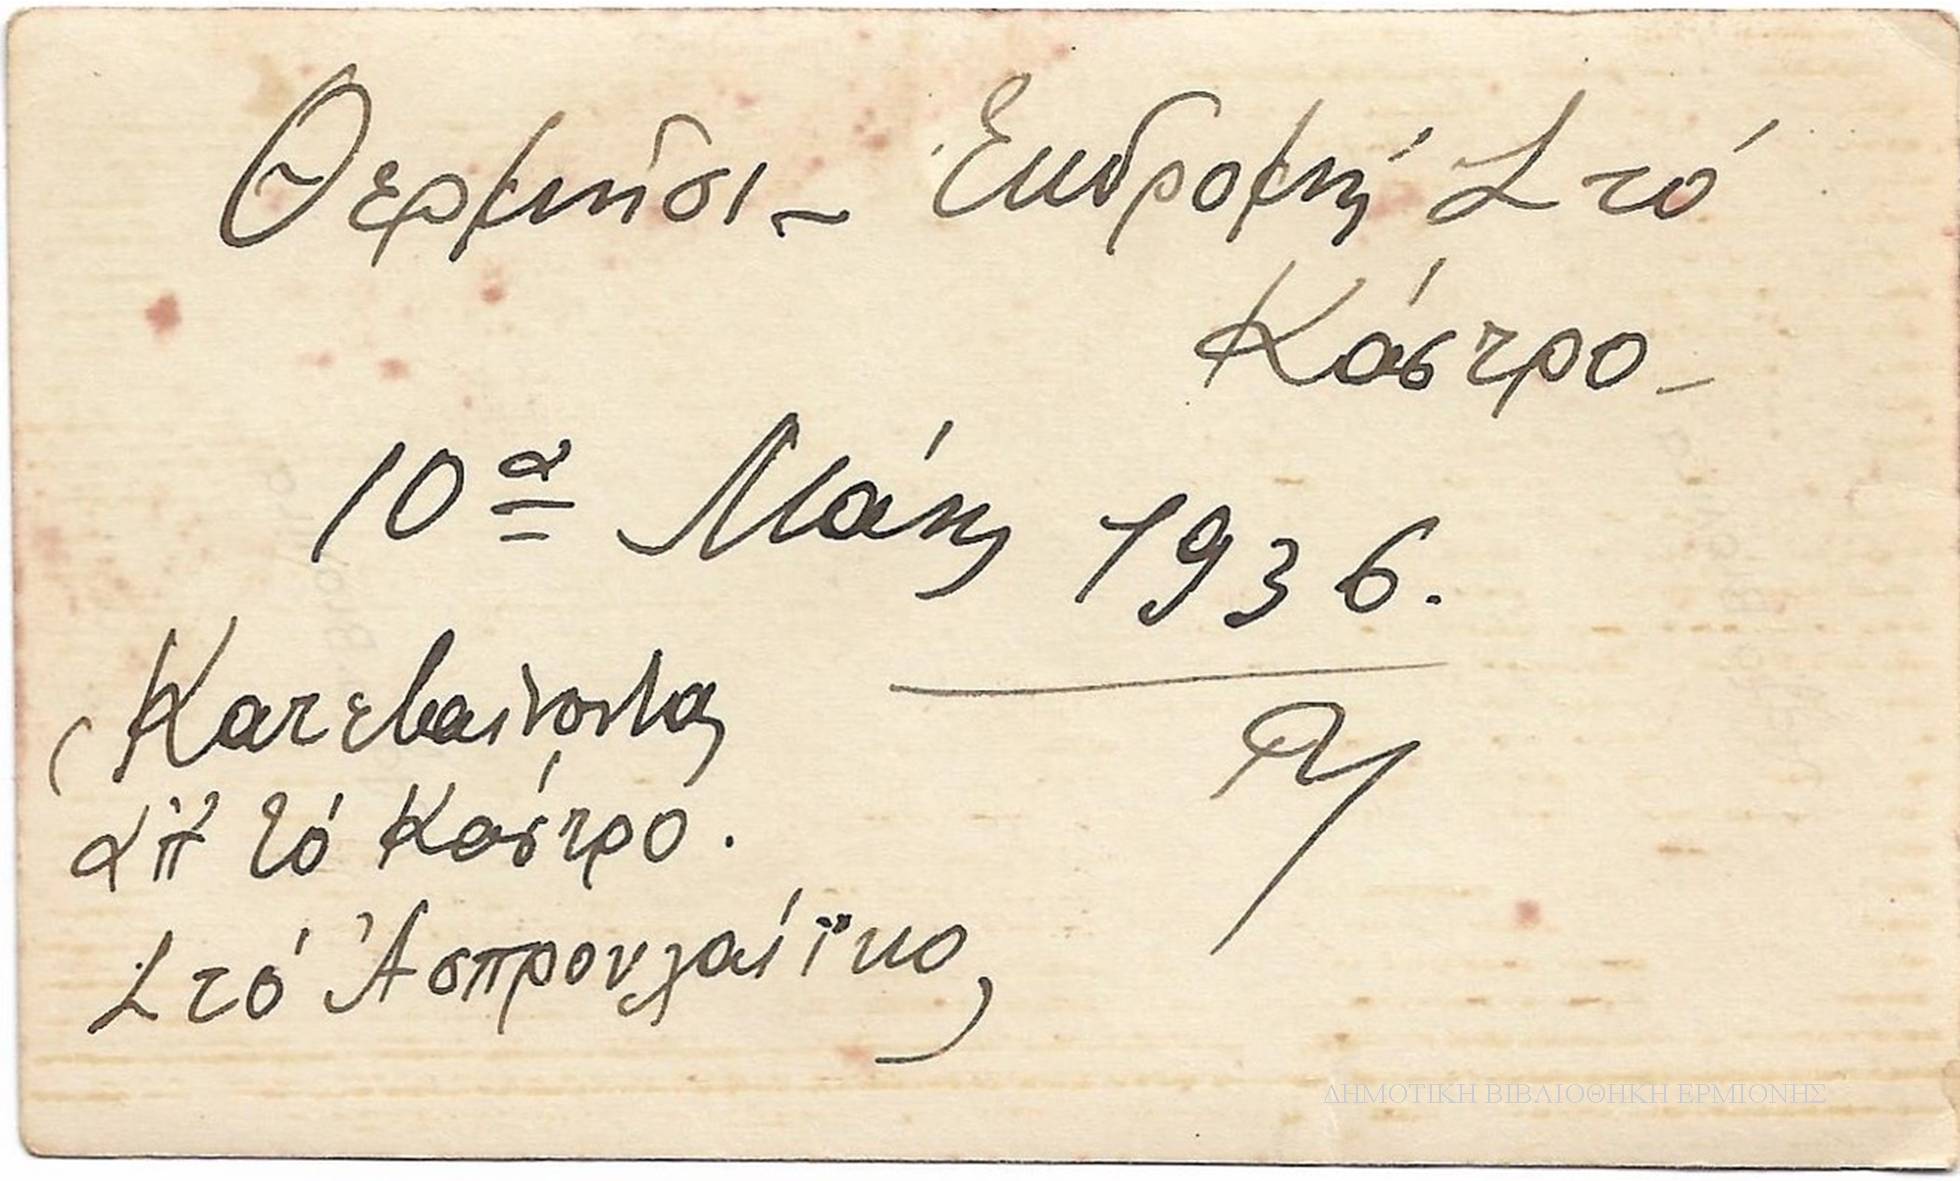 Θερμησι ~ Ἐκδρομή Στό
Κάστρο -
10α Μάη 1936.
(Κατεβαίνοντας
ἀπ' τό Κάστρο.
Στό Ἀσπρουλαίϊκο)
ΔΗΜΟΤΙΚΗ ΒΙΒΛΙΟΘΗΚΗ ΕΡΜΙΟΝΗΣ